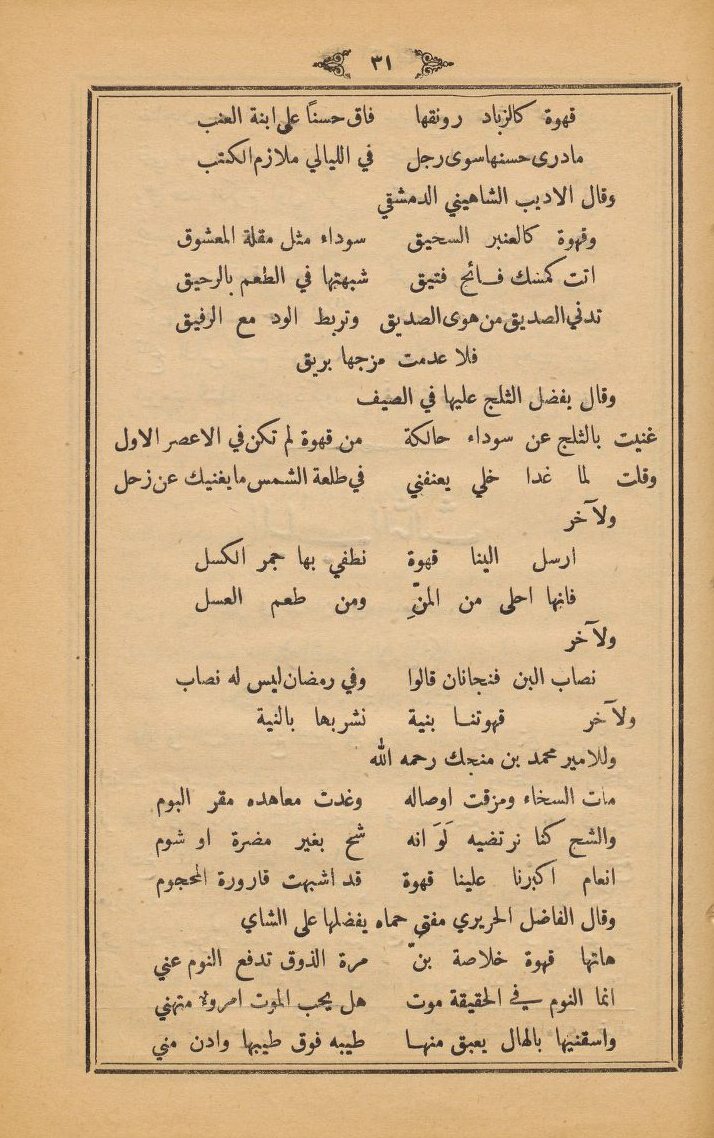 ٣١
قهوة كالزباد رونقها فاق حسناً على ابنة العنب
مادرى حسنها سوى رجل في الليالي ملازم الكتب
وقال الاديب الشاهيني الدمشقي
وقهوة كالعنبر السحيق سوداء مثل مقلة المعشوق
اتت كمسك فائح فتيق شبهتها في الطعم بالرحيق
تدني الصديق من هوى الصديق وتربط الود مع الرفيق
فلا عدمت مزجها بريق
وقال يفضل الثلج عليها في الصيف
غنيت بالثلج عن سوداء حالكة من قهوة لم تكن في الاعصر الاول
وقلت لما غدا خلي يعنفني في طلعة الشمس ما يغنيك عن زحل
ولآخر
ارسل الينا قهوة نطفي بها جمر الكسل
فانها احلى من المنّ ومن طعم العسل
ولآخر
نصاب البن فنجانان قالوا وفي رمضان ليس له نصاب
ولآخر قهوتنا بنية نشربها بالنية
وللامير محمد بن منجك رحمه الله
مات السخاء ومزقت اوصاله وغدت معاهده مقر البوم
والشح كنا نرتضيه لَوَ انه شح بغير مضرة او شوم
انعام اكبرنا علينا قهوة قد اشبهت قارورة المحجوم
وقال الفاضل الحريري مفتي حماه يفضلها على الشاي
هاتها قهوة خلاصة بنّ مرة الذوق تدفع النوم عني
انما النوم في الحقيقة موت هل يحب الموت امروء متهني
واسقنيها بالهال يعبق منها طيبه فوق طيبها وادن مني